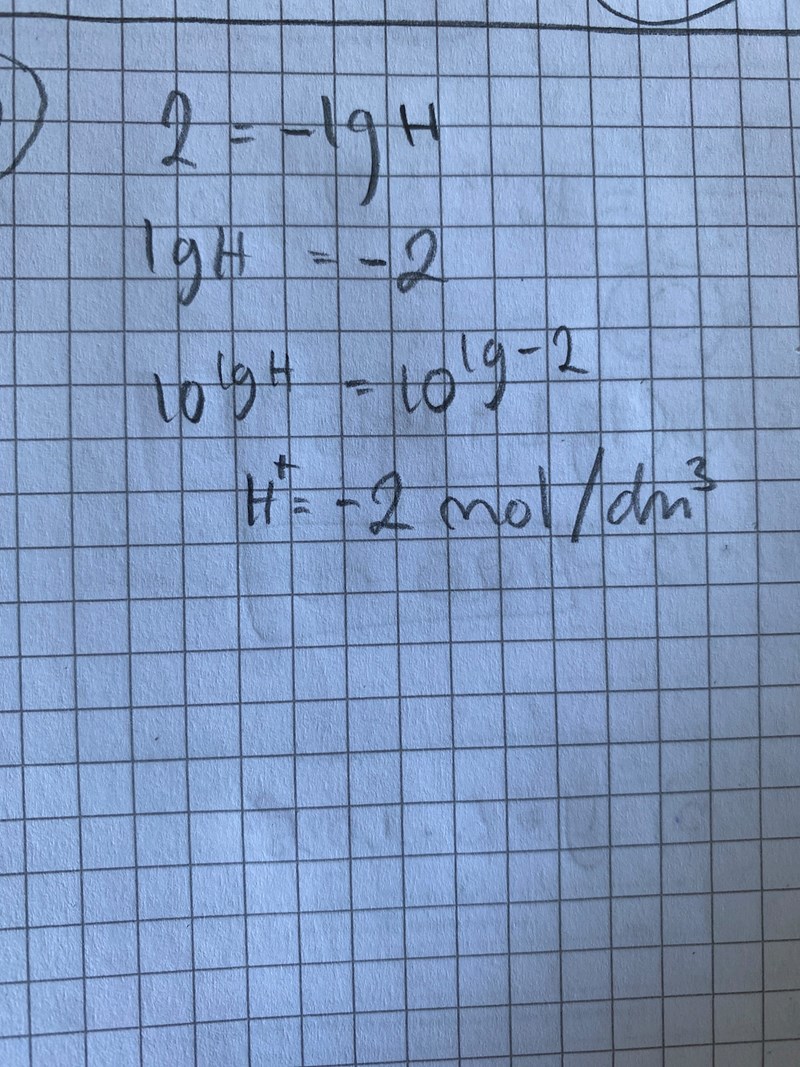 2 = -lg H
lg H = -2
10^lg H = 10^lg -2
H⁺ = -2 mol/dm³